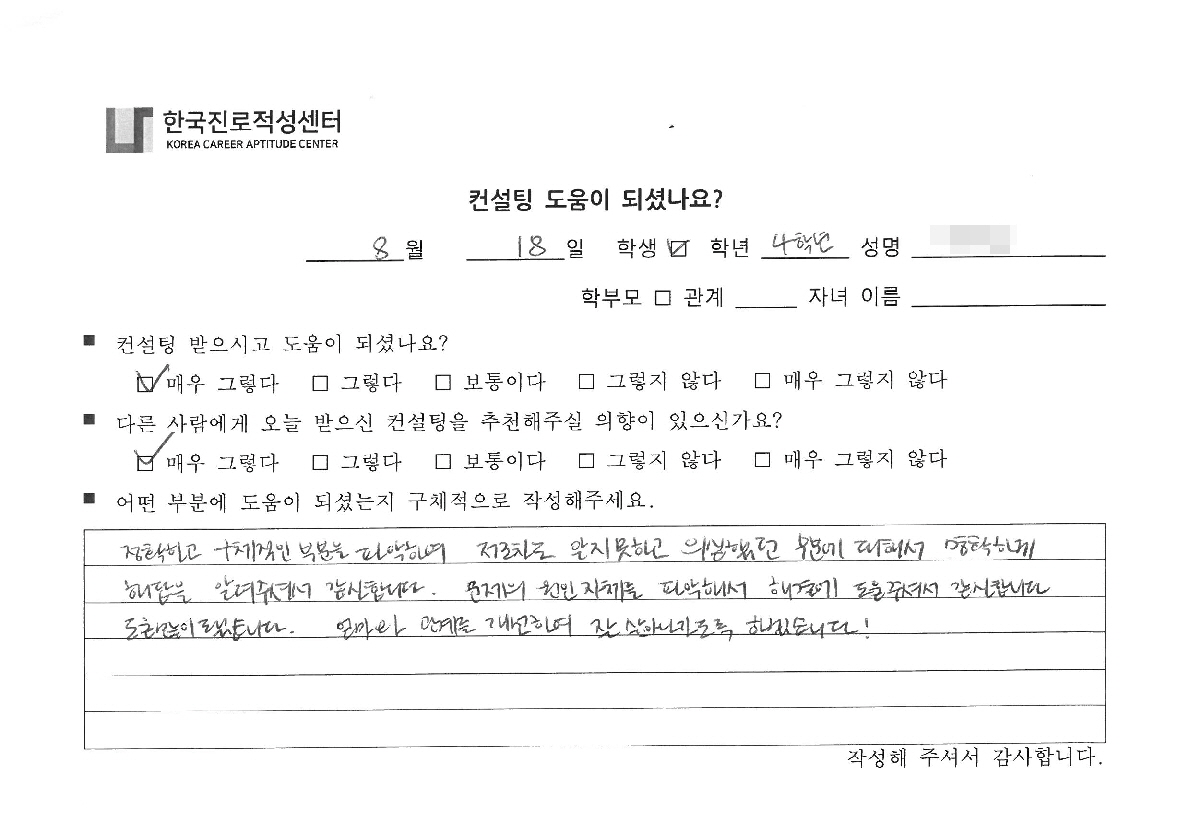 한국진로적성센터
KOREA CAREER APTITUDE CENTER
컨설팅 도움이 되셨나요?
8 월 18 일 학생 ☑ 학년 4학년 성명
학부모 □ 관계 자녀 이름
■ 컨설팅 받으시고 도움이 되셨나요?
☑ 매우 그렇다 □ 그렇다 □ 보통이다 □ 그렇지 않다 □ 매우 그렇지 않다
■ 다른 사람에게 오늘 받으신 컨설팅을 추천해주실 의향이 있으신가요?
☑ 매우 그렇다 □ 그렇다 □ 보통이다 □ 그렇지 않다 □ 매우 그렇지 않다
■ 어떤 부분에 도움이 되셨는지 구체적으로 작성해주세요.
정확하고 구체적인 부분을 파악하여 저조차도 알지못하고 의심했던 부분에 대해서 명확하게
해답을 알려주셔서 감사합니다. 문제의 원인 자체를 파악해서 해결에 도움주셔서 감사합니다
도움많이되었습니다. 엄마와 관계를 개선하여 잘 살아나가도록 하겠습니다!
작성해 주셔서 감사합니다.